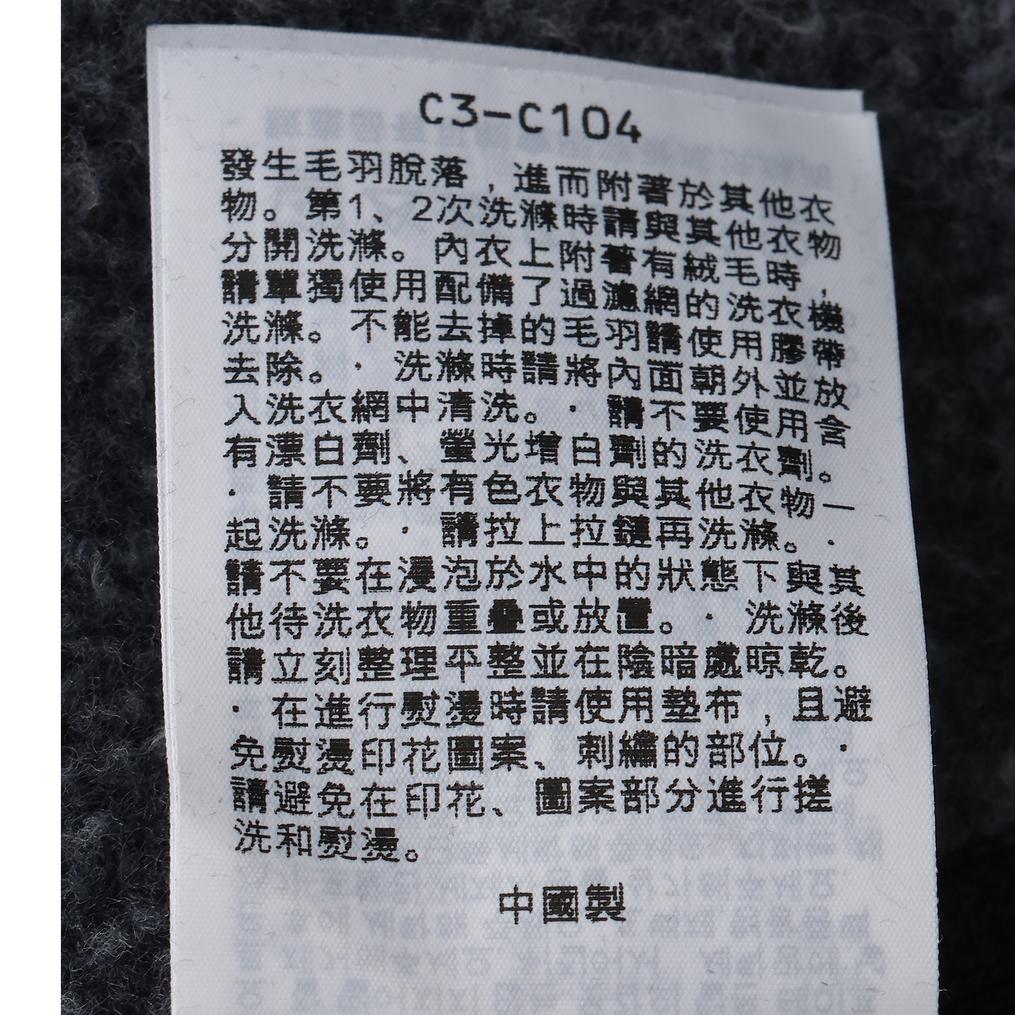 C3-C104
發生毛羽脫落,進而附著於其他衣
物。第1、2次洗滌時請與其他衣物
分開洗滌。內衣上附著有絨毛時,
請單獨使用配備了過濾網的洗衣機
洗滌。不能去掉的毛羽請使用膠帶
去除。· 洗滌時請將內面朝外並放
入洗衣網中清洗。· 請不要使用含
有漂白劑、螢光增白劑的洗衣劑。
· 請不要將有色衣物與其他衣物一
起洗滌。· 請拉上拉鏈再洗滌。·
請不要在浸泡於水中的狀態下與其
他待洗衣物重疊或放置。· 洗滌後
請立刻整理平整並在陰暗處晾乾。
· 在進行熨燙時請使用墊布,且避
免熨燙印花圖案、刺繡的部位。·
請避免在印花、圖案部分進行搓
洗和熨燙。
中國製